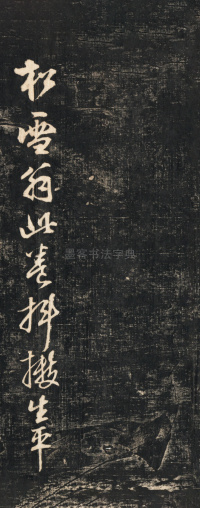 松雪翁此卷抖擞生平
墨客书法字典